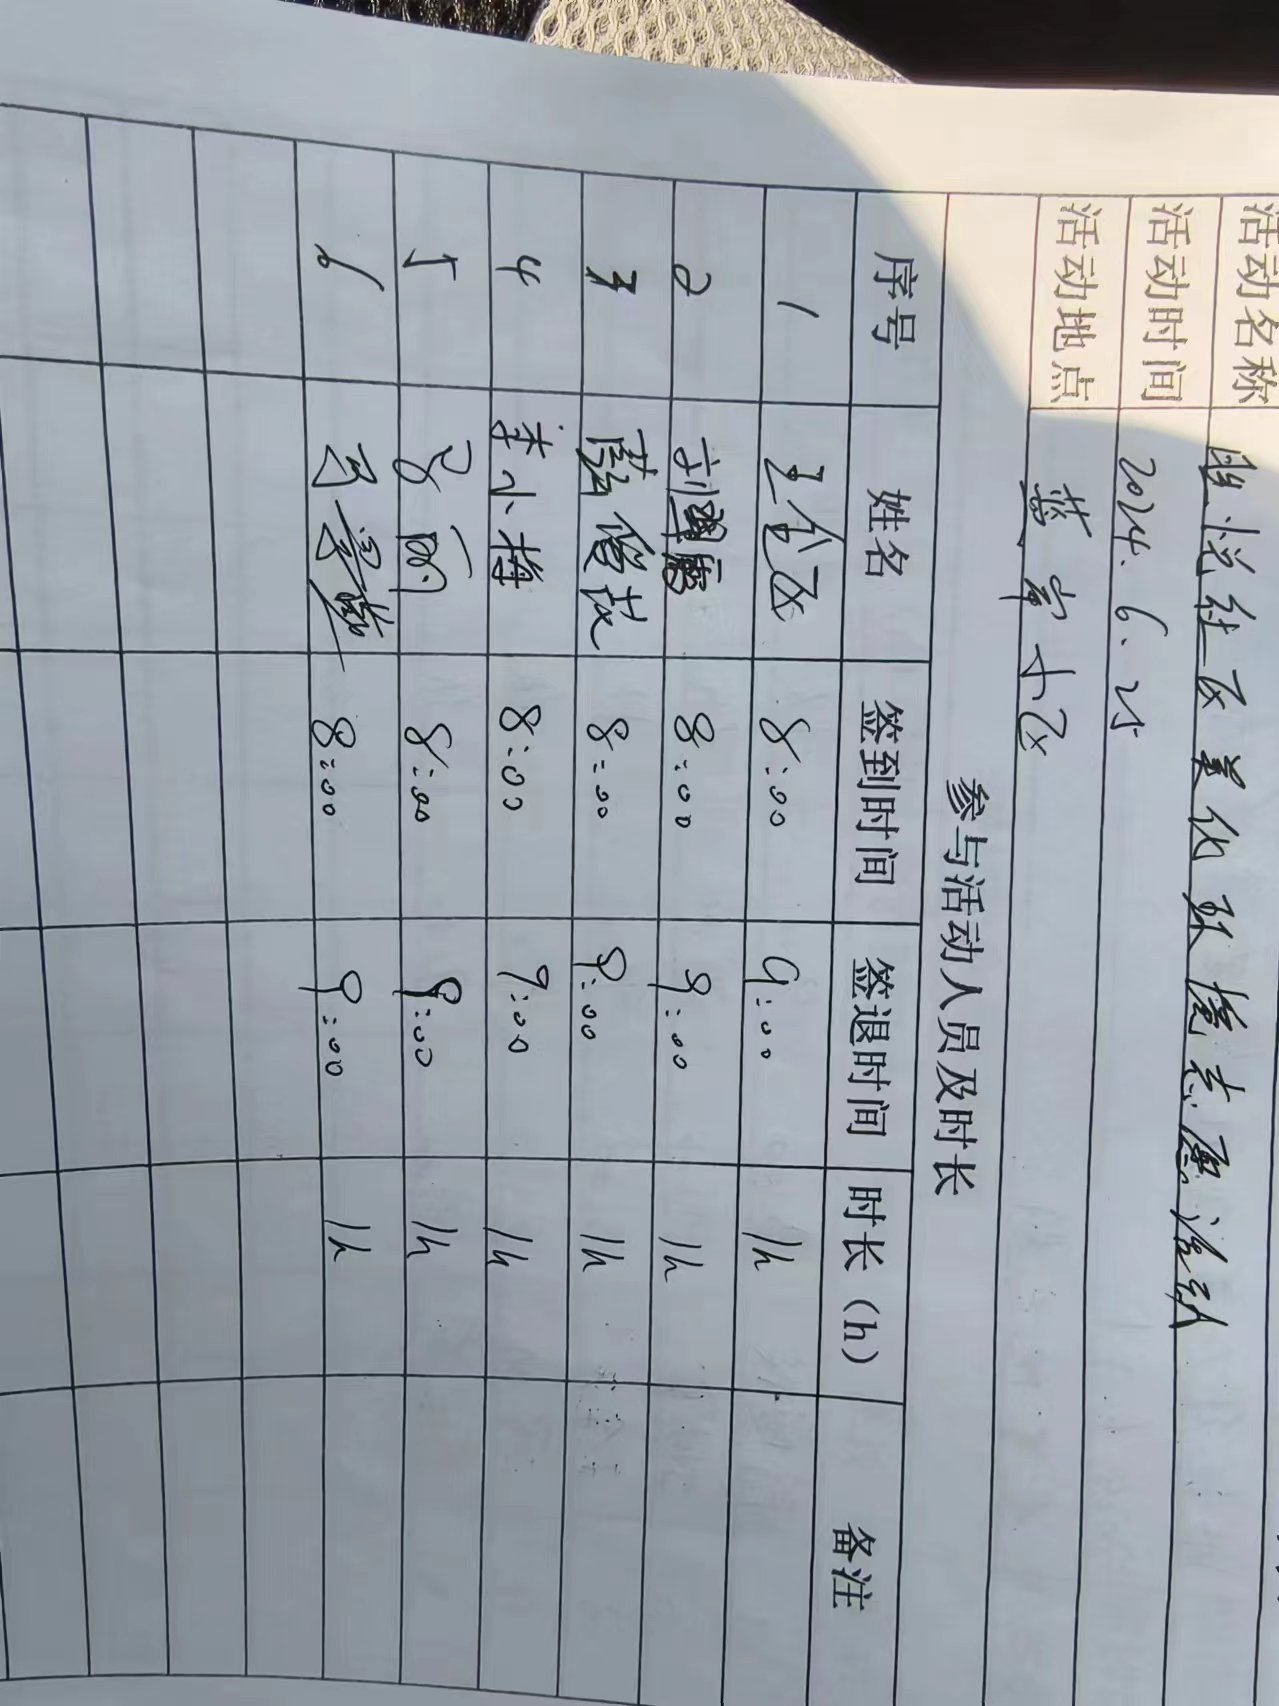 活动名称 悦社区美化环境志愿活动
活动时间 2024.6.25
活动地点 小区
参与活动人员及时长
序号 姓名 签到时间 签退时间 时长（h） 备注
1 8:00 9:00 1h
2 刘 8:00 9:00 1h
3 8:00 9:00 1h
4 李小梅 8:00 9:00 1h
5 冯丽 8:00 9:00 1h
6 8:00 9:00 1h